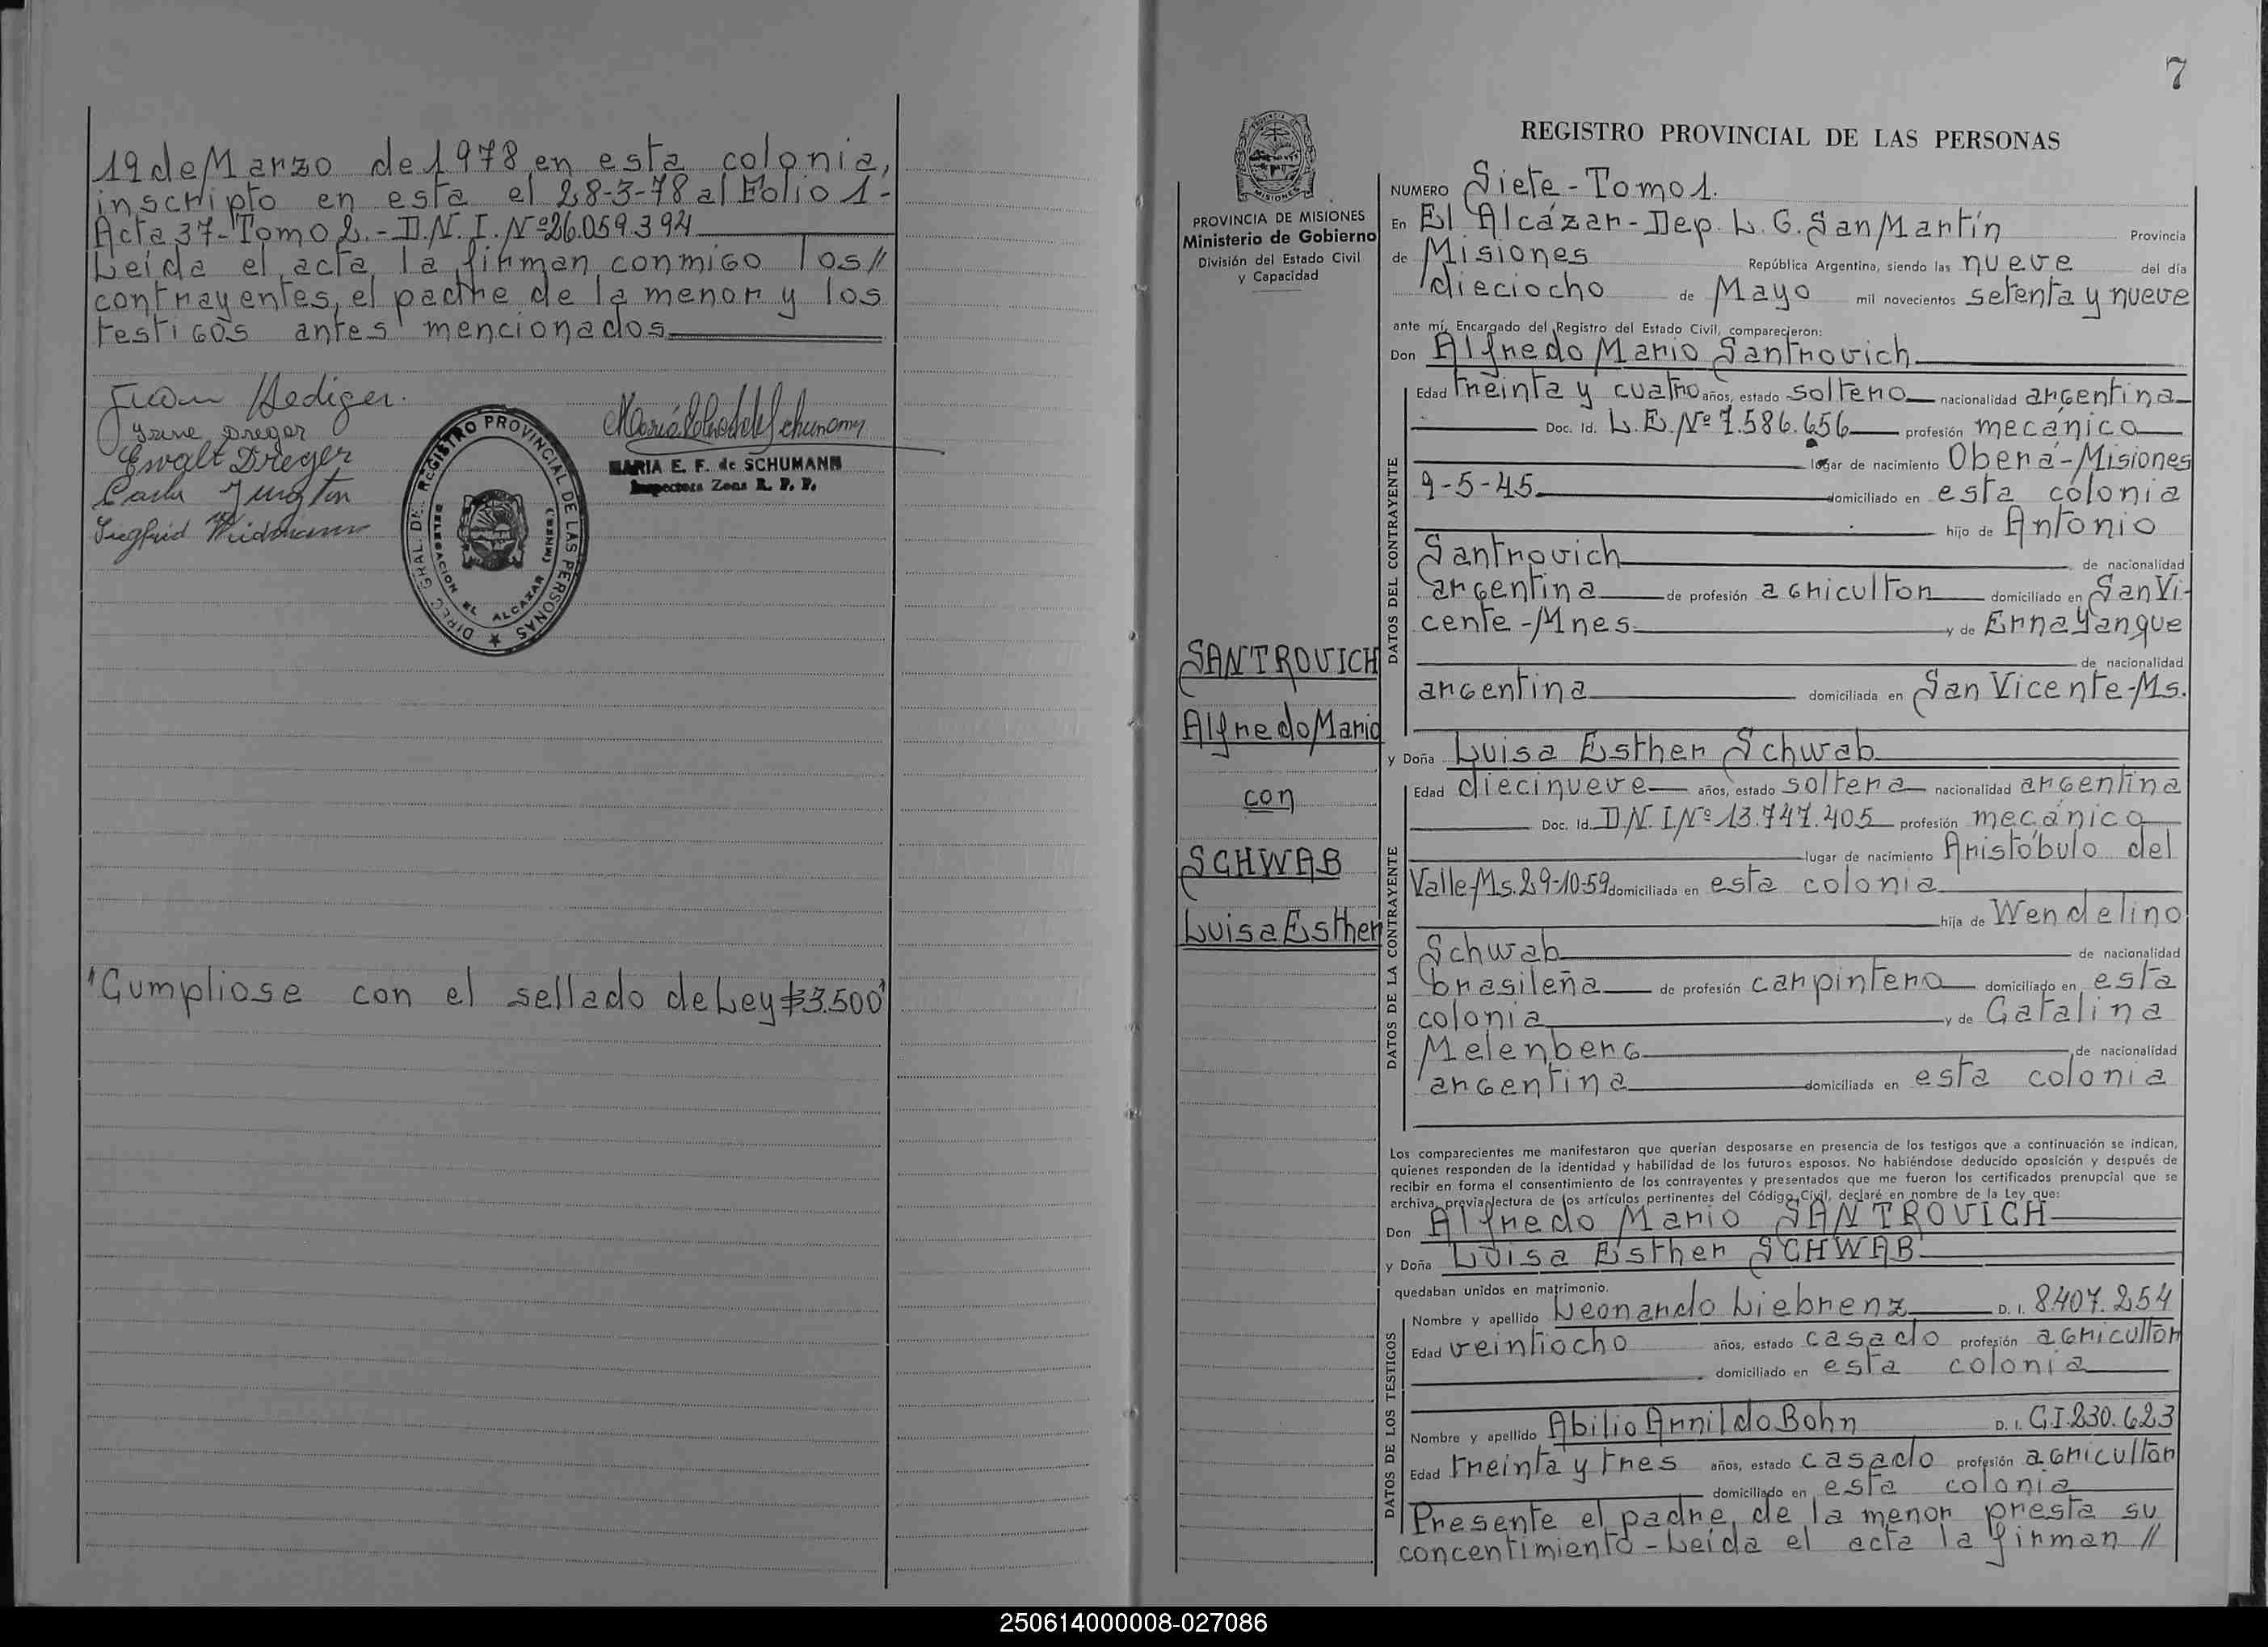 19 de Marzo de 1978 en esta colonia,
inscripto en esta el 28-3-78 al Folio 1-
Acta 37-Tomo 2.- D.N.I. Nº26.059.394
Leida el acta la firman conmigo los//
contrayentes, el padre de la menor y los
testigos antes mencionados
Juan Hediger.
Irene Dreger
Ewalt Dreger
Carlos Jungton
Siegfrid Widmann
DIREC. GRAL. DEL REGISTRO PROVINCIAL DE LAS PERSONAS
DELEGACION EL ALCAZAR (MNES.)
MARIA E. F. de SCHUMANN
Inspectora Zona R. P. P.
"Cumpliose con el sellado de Ley $3.500"
7
PROVINCIA DE MISIONES
Ministerio de Gobierno
División del Estado Civil
y Capacidad
SANTROVICH
Alfredo Mario
con
SCHWAB
Luisa Esther
REGISTRO PROVINCIAL DE LAS PERSONAS
NUMERO Siete-Tomo 1.
En El Alcázar-Dep. L. G. San Martín Provincia
de Misiones República Argentina, siendo las nueve del día
dieciocho de Mayo mil novecientos setenta y nueve
ante mí, Encargado del Registro del Estado Civil, comparecieron:
Don Alfredo Mario Santrovich
DATOS DEL CONTRAYENTE
Edad treinta y cuatro años, estado soltero nacionalidad argentina
Doc. Id. L.E.Nº 7.586.656 profesión mecánico
lugar de nacimiento Oberá-Misiones
9-5-45 domiciliado en esta colonia
hijo de Antonio
Santrovich de nacionalidad
argentina de profesión agricultor domiciliado en San Vi-
cente-Mnes. y de Erna Yanque
de nacionalidad
argentina domiciliada en San Vicente-Ms.
y Doña Luisa Esther Schwab
DATOS DE LA CONTRAYENTE
Edad diecinueve años, estado soltera nacionalidad argentina
Doc. Id. D.N.I Nº 13.747.405 profesión mecánico
lugar de nacimiento Aristóbulo del
Valle-Ms. 29-10-59 domiciliada en esta colonia
hija de Wendelino
Schwab de nacionalidad
brasileña de profesión carpintero domiciliado en esta
colonia y de Catalina
Melenberg de nacionalidad
argentina domiciliada en esta colonia
Los comparecientes me manifestaron que querían desposarse en presencia de los testigos que a continuación se indican,
quienes responden de la identidad y habilidad de los futuros esposos. No habiéndose deducido oposición y después de
recibir en forma el consentimiento de los contrayentes y presentados que me fueron los certificados prenupcial que se
archiva, previa lectura de los artículos pertinentes del Código Civil, declaré en nombre de la Ley que:
Don Alfredo Mario SANTROVICH
y Doña Luisa Esther SCHWAB
quedaban unidos en matrimonio.
DATOS DE LOS TESTIGOS
Nombre y apellido Leonardo Liebrenz D. I. 8.407.254
Edad veintiocho años, estado casado profesión agricultor
domiciliado en esta colonia
Nombre y apellido Abilio Arnildo Bohn D. I. C.I.230.623
Edad treinta y tres años, estado casado profesión agricultor
domiciliado en esta colonia
Presente el padre de la menor presta su
concentimiento-Leida el acta la firman //
250614000008-027086